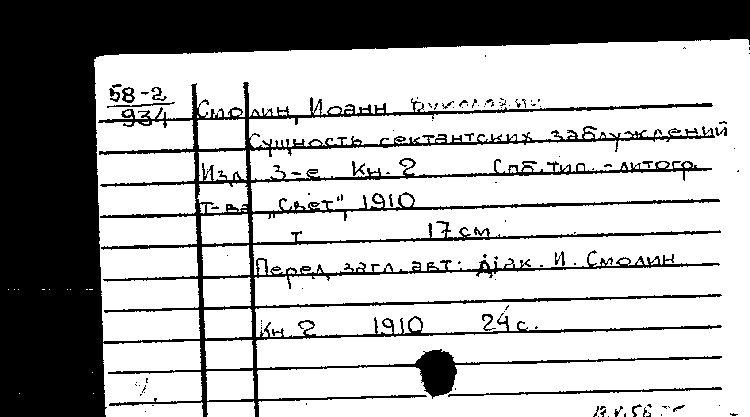 58-2
934
Смолин, Иоанн Вуколович
Сущность сектантских заблуждений
Изд. 3-е Кн. 2 Спб. тип.-литогр.
т-ва „Свет“, 1910
т 17 см.
Перед загл. авт: дiак. И. Смолин
Кн. 2 1910 24 с.